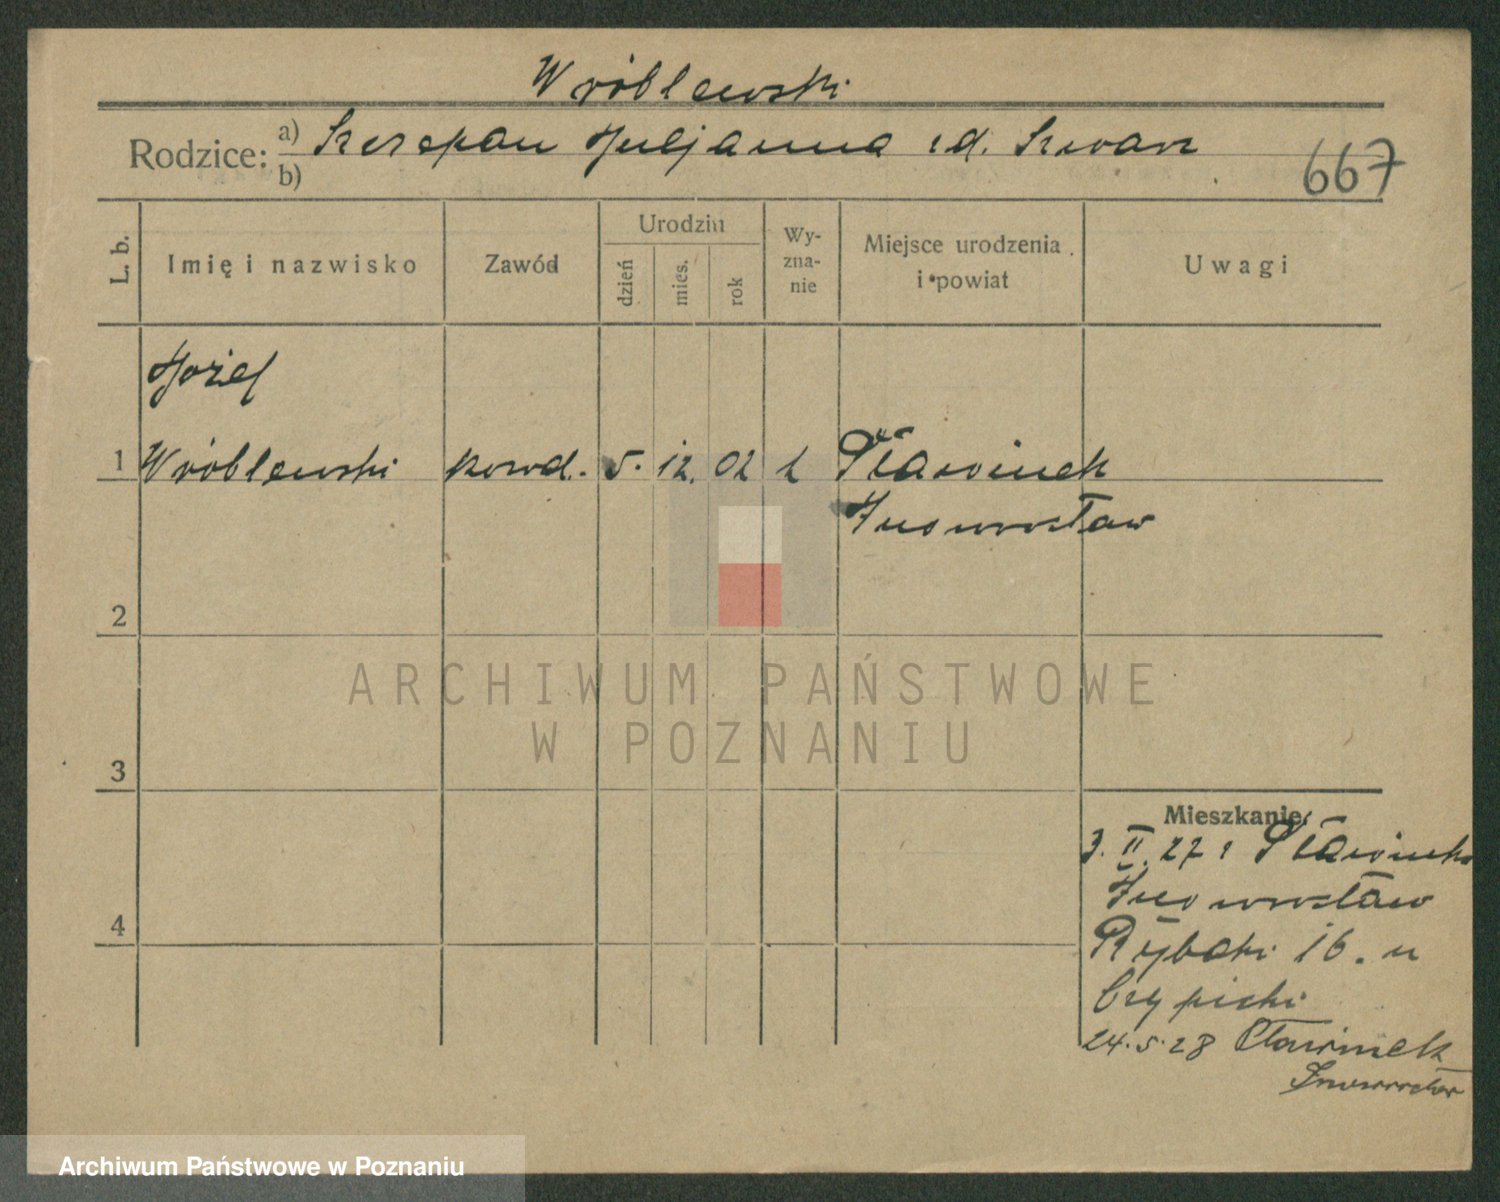 Wróblewski
Rodzice: a) Szczepan Juljanna zd. Szwarz
b)
667
L. b.
Imię i nazwisko
Zawód
Urodzin
dzień
mies.
rok
Wy-
zna-
nie
Miejsce urodzenia
i powiat
Uwagi
Józef
1 Wróblewski kowal. 5. 12. 02 k Sławinek
Inowrocław
2
3
4
Mieszkanie:
3. II. 27 z Sławinka
Inowrocław
Rybaki 16. u
24.5.28 Sławinek
Inowrocław
ARCHIWUM PAŃSTWOWE
W POZNANIU
Archiwum Państwowe w Poznaniu